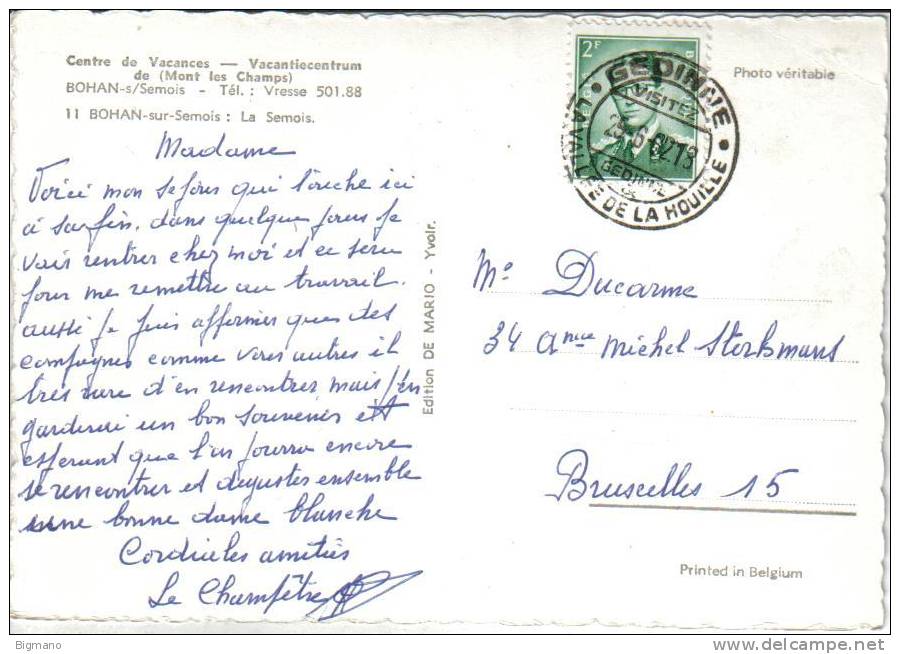 Centre de Vacances — Vacantiecentrum
de (Mont les Champs)
BOHAN-s/Semois - Tél. : Vresse 501.88
11 BOHAN-sur-Semois : La Semois.
Madame
Voici mon sejour qui touche ici
à sa fin. dans quelque jours je
vais rentrer chez moi et ce sera
pour me remettre au travail.
aussi je puis affirmer que des
compagnes comme vous autres il
très rare d'en rencontrer mais j'en
garderai un bon souvenir et
esperant que l'on pourra encore
se rencontrer et degustes ensemble
une bonne dame blanche
Cordiales amitiés
Le Champêtre
Edition DE MARIO - Yvoir.
2F
BELGIE
GEDINNE
VISITEZ
25-6-62 18
GEDINNE
LA VALLEE DE LA HOUILLE
Photo véritable
Me Ducarme
34 Anue Michel Sterkmans
Bruxelles 15
Printed in Belgium
Bigmano
www.delcampe.net